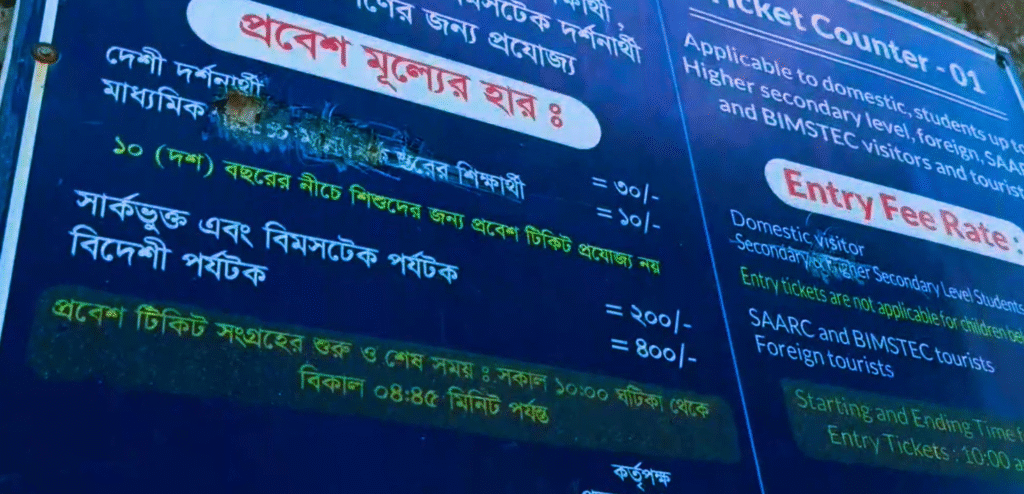 শিক্ষার্থী,
বিমসটেক দর্শনার্থী
জন্য প্রযোজ্য
প্রবেশ মূল্যের হার ঃ
দেশী দর্শনার্থী = ৩০/-
মাধ্যমিক স্তরের শিক্ষার্থী = ১০/-
১০ (দশ) বছরের নীচে শিশুদের জন্য প্রবেশ টিকিট প্রযোজ্য নয়
সার্কভুক্ত এবং বিমসটেক পর্যটক = ২০০/-
বিদেশী পর্যটক = ৪০০/-
প্রবেশ টিকিট সংগ্রহের শুরু ও শেষ সময় ঃ সকাল ১০:০০ ঘটিকা থেকে
বিকাল ০৪:৪৫ মিনিট পর্যন্ত
কর্তৃপক্ষ
Ticket Counter - 01
Applicable to domestic, students up to
Higher secondary level, foreign, SAARC
and BIMSTEC visitors and tourists
Entry Fee Rate :
Domestic visitor
Secondary Higher Secondary Level Students
Entry tickets are not applicable for children
SAARC and BIMSTEC tourists
Foreign tourists
Starting and Ending Time
Entry Tickets : 10:00